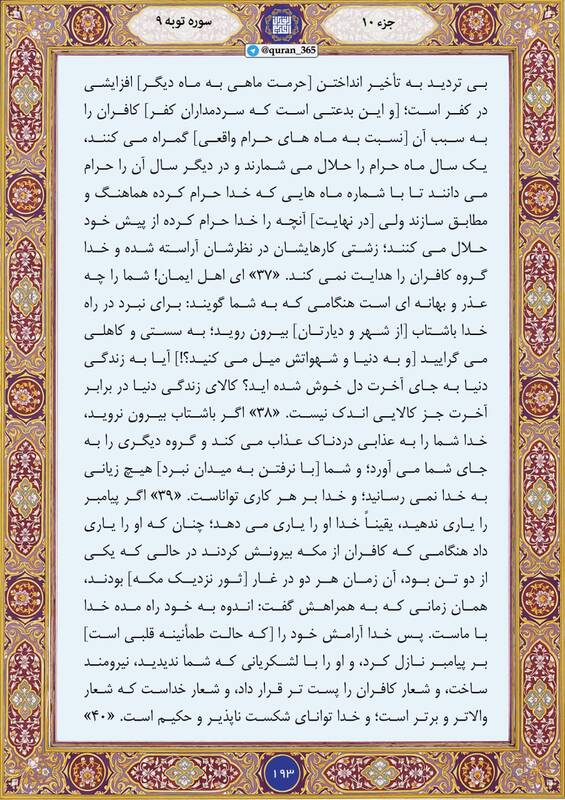 جزء ۱۰
سوره توبه ۹
@quran_365
بی تردید به تأخیر انداختن [حرمت ماهی به ماه دیگر] افزایشی
در کفر است؛ [و این بدعتی است که سردمداران کفر] کافران را
به سبب آن [نسبت به ماه های حرام واقعی] گمراه می کنند،
یک سال ماه حرام را حلال می شمارند و در دیگر سال آن را حرام
می دانند تا با شماره ماه هایی که خدا حرام کرده هماهنگ و
مطابق سازند ولی [در نهایت] آنچه را خدا حرام کرده از پیش خود
حلال می کنند؛ زشتی کارهایشان در نظرشان آراسته شده و خدا
گروه کافران را هدایت نمی کند. «۳۷» ای اهل ایمان! شما را چه
عذر و بهانه ای است هنگامی که به شما گویند: برای نبرد در راه
خدا باشتاب [از شهر و دیارتان] بیرون روید؛ به سستی و کاهلی
می گرایید [و به دنیا و شهواتش میل می کنید؟!] آیا به زندگی
دنیا به جای آخرت دل خوش شده اید؟ کالای زندگی دنیا در برابر
آخرت جز کالایی اندک نیست. «۳۸» اگر باشتاب بیرون نروید،
خدا شما را به عذابی دردناک عذاب می کند و گروه دیگری را به
جای شما می آورد؛ و شما [با نرفتن به میدان نبرد] هیچ زیانی
به خدا نمی رسانید؛ و خدا بر هر کاری تواناست. «۳۹» اگر پیامبر
را یاری ندهید، یقیناً خدا او را یاری می دهد؛ چنان که او را یاری
داد هنگامی که کافران از مکه بیرونش کردند در حالی که یکی
از دو تن بود، آن زمان هر دو در غار [ثور نزدیک مکه] بودند،
همان زمانی که به همراهش گفت: اندوه به خود راه مده خدا
با ماست. پس خدا آرامش خود را [که حالت طمأنینه قلبی است]
بر پیامبر نازل کرد، و او را با لشکریانی که شما ندیدید، نیرومند
ساخت، و شعار کافران را پست تر قرار داد، و شعار خداست که شعار
والاتر و برتر است؛ و خدا توانای شکست ناپذیر و حکیم است. «۴۰»
۱۹۳